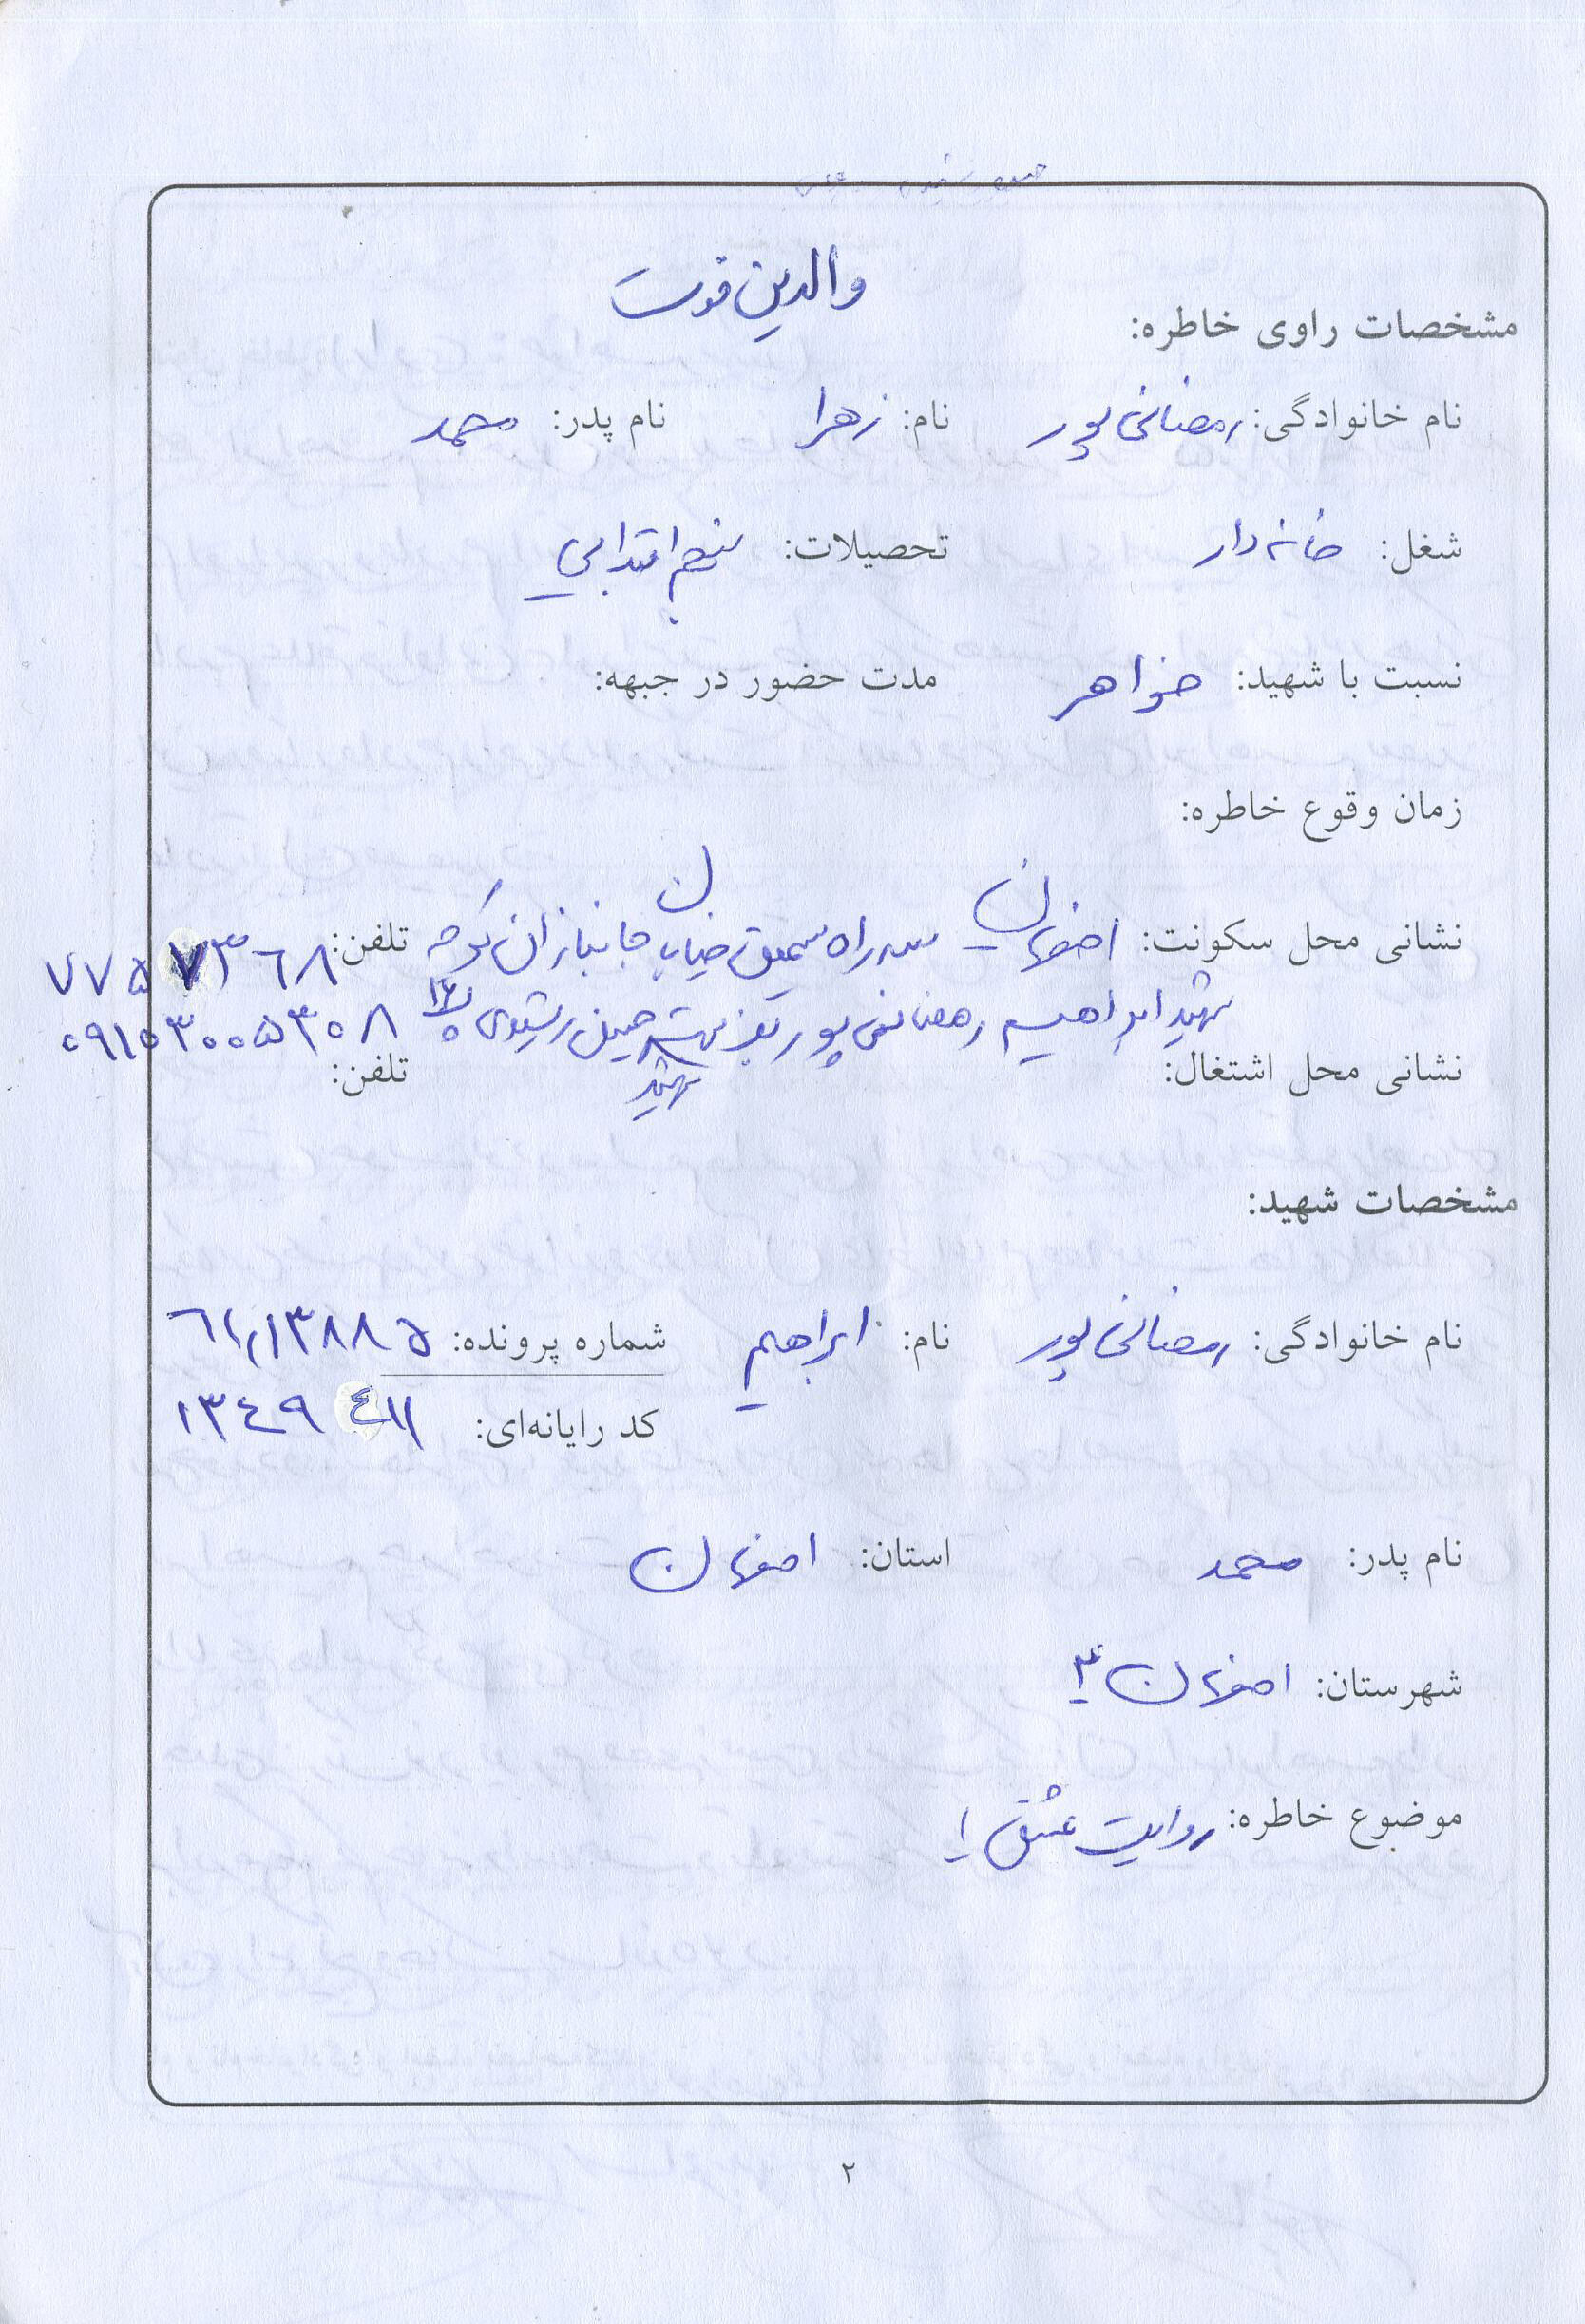 والدین فوت
مشخصات راوی خاطره:
نام خانوادگی: رمضانی پور نام: زهرا نام پدر: محمد
شغل: خانه دار تحصیلات: پنجم ابتدایی
نسبت با شهید: خواهر مدت حضور در جبهه:
زمان وقوع خاطره:
نشانی محل سکونت: اصفهان سه راه سیمین خیابان جانبازان کوچه تلفن: ۷۷۵۷۳۶۸
شهید ابراهیم رمضانی پور بن بست شهید رشیدی ۰۹۱۵۳۰۰۵۳۰۸
نشانی محل اشتغال: تلفن:
مشخصات شهید:
نام خانوادگی: رمضانی پور نام: ابراهیم شماره پرونده: ۶۱/۱۳۸۸۵
کد رایانه‌ای: ۱۳۴۹۴۱۱
نام پدر: محمد استان: اصفهان
شهرستان: اصفهان ۳
موضوع خاطره: روایت عشق ۱
۲